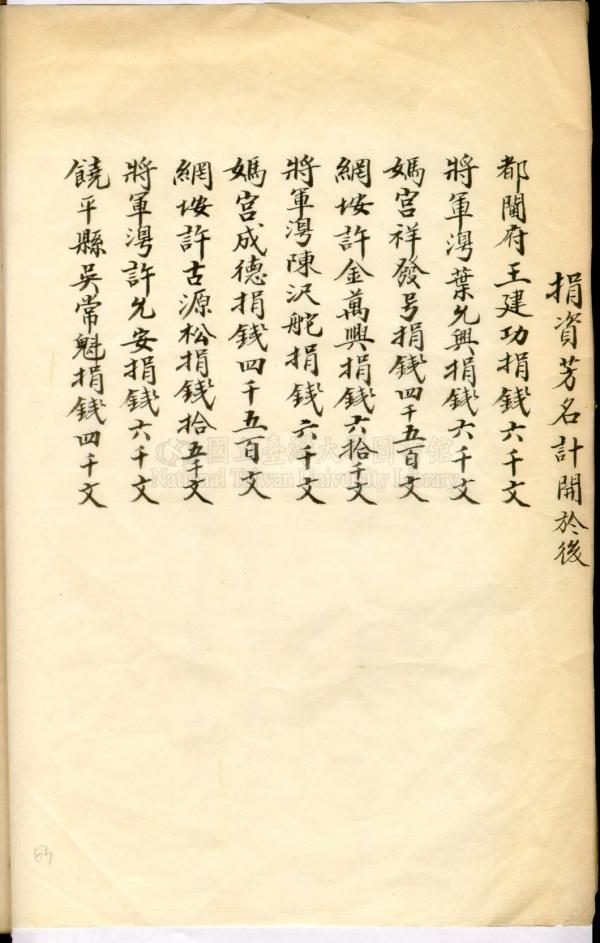 捐資芳名計開於後
都閫府王建功捐錢六千文
將軍澚葉允興捐錢六千文
媽宮祥發号捐錢四千五百文
網垵許金萬興捐錢六拾千文
將軍澚陳沢舵捐錢六千文
媽宮成德捐錢四千五百文
網垵許古源松捐錢拾五千文
將軍澚許允安捐錢六千文
饒平縣吳常魁捐錢四千文
國立臺灣大學圖書館
National Taiwan University Library
63